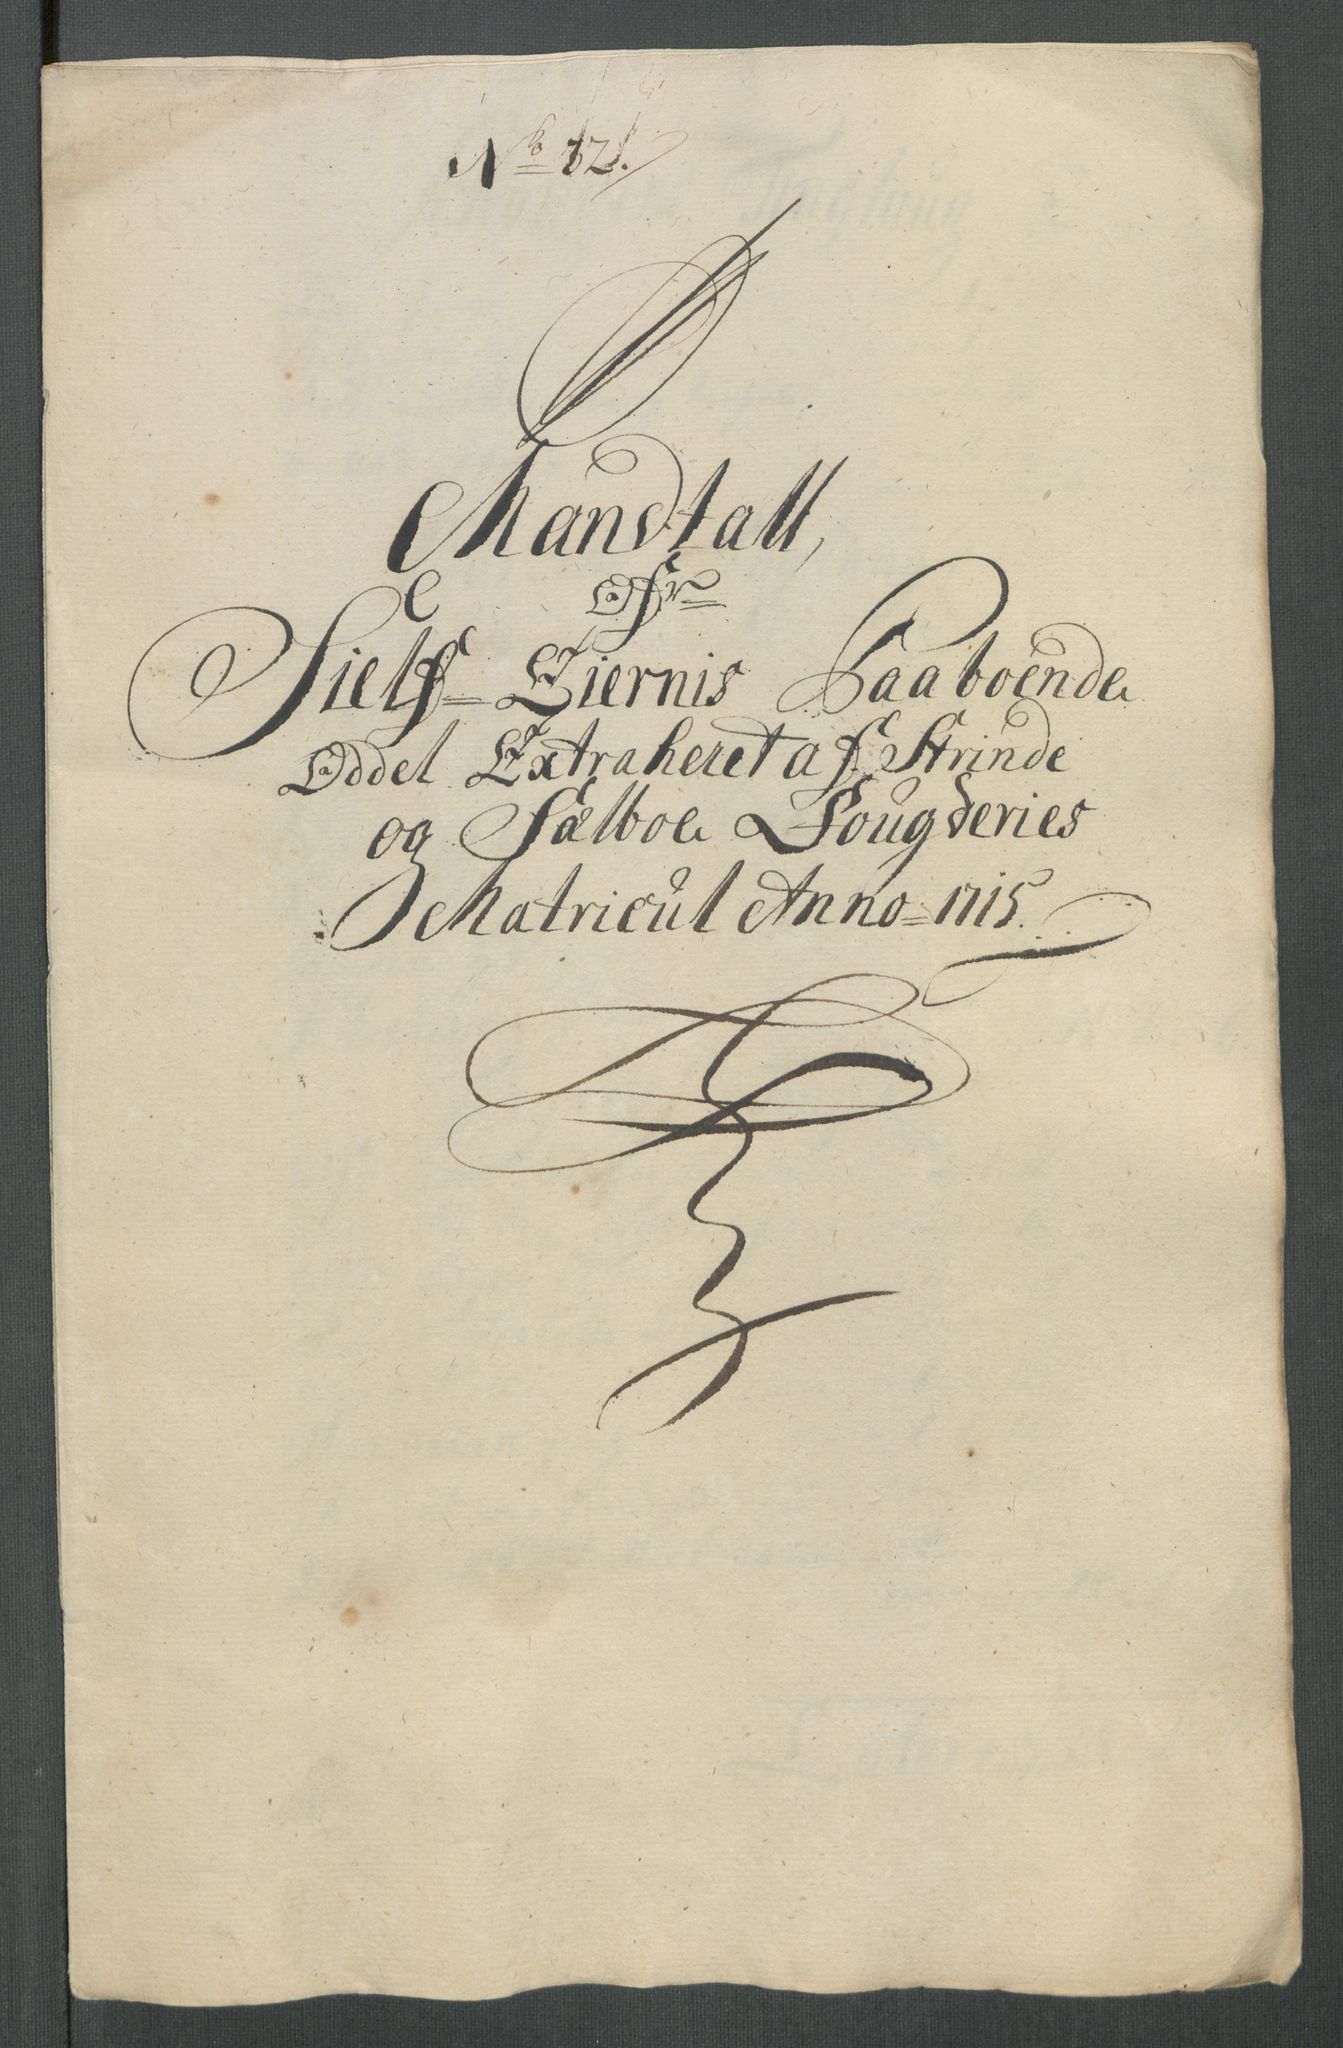 No 12.
Mandtall,
Ofr
Sielf Eiernis Paaboende
Oddel Extraheret af Strinde
og Sælboe Fougderies
Matricul Anno 1715.